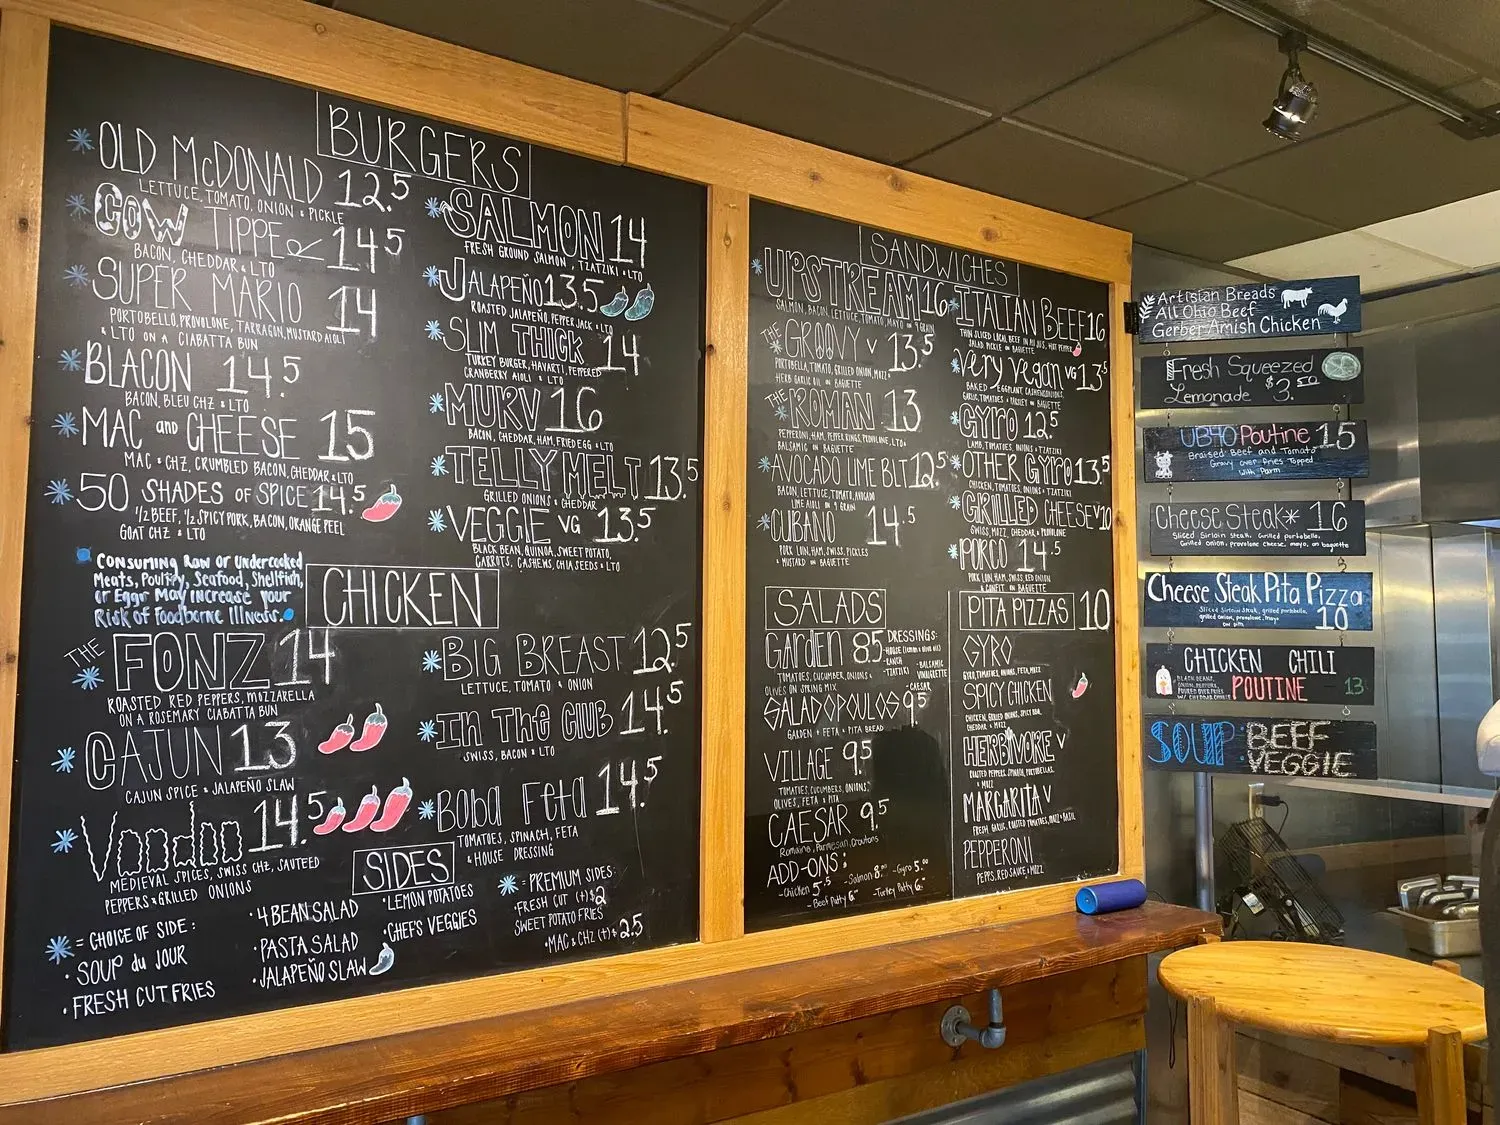 BURGERS
OLD McDONALD 12.5
LETTUCE, TOMATO, ONION & PICKLE
COW TIPPER 14.5
BACON, CHEDDAR & LTO
SUPER MARIO 14
PORTOBELLO, PROVOLONE, TARRAGON, MUSTARD AIOLI
& LTO ON A CIABATTA BUN
BLACON 14.5
BACON, BLEU CHZ & LTO
MAC and CHEESE 15
MAC & CHZ, CRUMBLED BACON, CHEDDAR & LTO
50 SHADES OF SPICE 14.5
1/2 BEEF, 1/2 SPICY PORK, BACON, ORANGE PEEL
GOAT CHZ & LTO
CONSUMING RAW OR UNDERCOOKED
MEATS, POULTRY, SEAFOOD, SHELLFISH,
OR EGGS MAY INCREASE YOUR
RISK OF FOODBORNE ILLNESS.
SALMON 14
FRESH GROUND SALMON, TZATZIKI & LTO
JALAPEÑO 13.5
ROASTED JALAPEÑO, PEPPER JACK & LTO
SLIM THICK 14
TURKEY BURGER, HAVARTI, PEPPERED
CRANBERRY AIOLI & LTO
MURV 16
BACON, CHEDDAR, HAM, FRIED EGG & LTO
TELLY MELT 13.5
GRILLED ONIONS & CHEDDAR
VEGGIE VG 13.5
BLACK BEAN, QUINOA, SWEET POTATO,
CARROTS, CASHEWS, CHIA SEEDS & LTO
CHICKEN
THE FONZ 14
ROASTED RED PEPPERS, MOZZARELLA
ON A ROSEMARY CIABATTA BUN
CAJUN 13
CAJUN SPICE & JALAPEÑO SLAW
VOODOO 14.5
MEDIEVAL SPICES, SWISS CHZ, SAUTEED
PEPPERS & GRILLED ONIONS
BIG BREAST 12.5
LETTUCE, TOMATO & ONION
IN THE CLUB 14.5
SWISS, BACON & LTO
BOBA FETA 14.5
TOMATOES, SPINACH, FETA
& HOUSE DRESSING
SIDES
* = CHOICE OF SIDE:
• SOUP du JOUR
• FRESH CUT FRIES
• 4 BEAN SALAD
• PASTA SALAD
• JALAPEÑO SLAW
• LEMON POTATOES
• CHEFS VEGGIES
* = PREMIUM SIDES:
• FRESH CUT (+) $2
SWEET POTATO FRIES
• MAC & CHZ (+) $2.5
SANDWICHES
UPSTREAM 16
SALMON, BACON, LETTUCE, TOMATO, MAYO ON 9 GRAIN
THE GROOVY V 13.5
PORTOBELLA, TOMATO, GRILLED ONION, MOZZ
HERB GARLIC OIL ON BAGUETTE
THE ROMAN 13
PEPPERONI, HAM, PEPPER RINGS, PROVOLONE, LTO &
BALSAMIC ON BAGUETTE
AVOCADO LIME BLT 12.5
BACON, LETTUCE, TOMATO, AVOCADO
LIME AIOLI ON 9 GRAIN
CUBANO 14.5
PORK LOIN, HAM, SWISS, PICKLES
& MUSTARD ON BAGUETTE
ITALIAN BEEF 16
THIN SLICED LOCAL BEEF IN AU JUS, HOT PEPPER
SALAD PICKLE ON BAGUETTE
Very Vegan VG 13.5
BAKED EGGPLANT,
GARLIC, TOMATOES & PARSLEY ON BAGUETTE
GYRO 12.5
LAMB, TOMATOES, ONIONS & TZATZIKI
OTHER GYRO 13.5
CHICKEN, TOMATOES, ONIONS & TZATZIKI
GRILLED CHEESE V 10
SWISS, MOZZ, CHEDDAR & PROVOLONE
PORCO 14.5
PORK LOIN, HAM, SWISS, RED ONION
CONFIT ON BAGUETTE
SALADS
GARDEN 8.5
TOMATOES, CUCUMBER, ONIONS &
OLIVES ON SPRING MIX
DRESSINGS:
- HOUSE (lemon & olive oil)
- RANCH
- TZATZIKI
- BALSAMIC
VINAIGRETTE
- CAESAR
SALADOPOULOS 9.5
GARDEN & FETA & PITA BREAD
VILLAGE 9.5
TOMATOES, CUCUMBERS, ONIONS,
OLIVES, FETA & PITA
CAESAR 9.5
Romaine, Parmesan, Croutons
ADD-ONS:
- Chicken 5.5 - Salmon 8.00 - Gyro 5.00
- Beef Patty 6.- - Turkey Patty 6.-
PITA PIZZAS 10
GYRO
GYRO, TOMATOES, ONION, FETA, MOZZ
SPICY CHICKEN
CHICKEN, GRILLED ONIONS, SPICY BBQ,
CHEDDAR & MOZZ
HERBIVORE V
ROASTED PEPPERS, SPINACH, PORTOBELLAS,
& MOZZ
MARGARITA V
FRESH GARLIC, ROASTED TOMATOES, MOZZ & BASIL
PEPPERONI
PEPPS, RED SAUCE & MOZZ
Artisian Breads
All Ohio Beef
Gerber Amish Chicken
Fresh Squeezed
Lemonade $3.50
UB40 Poutine 15
Braised Beef and Tomato
Gravy over Fries Topped
with Parm
Cheese Steak* 16
Sliced Sirloin steak, Grilled portobello,
Grilled onion, provolone cheese, mayo, on baguette
Cheese Steak Pita Pizza
Sliced Sirloin steak, grilled portobello,
grilled onion, provolone, mayo
on pita
10
CHICKEN CHILI
POUTINE 13
BLACK BEANS,
ONION, PEPPERS,
POURED OVER FRIES
W/ CHEDDAR CHEESE
SOUP: BEEF
VEGGIE